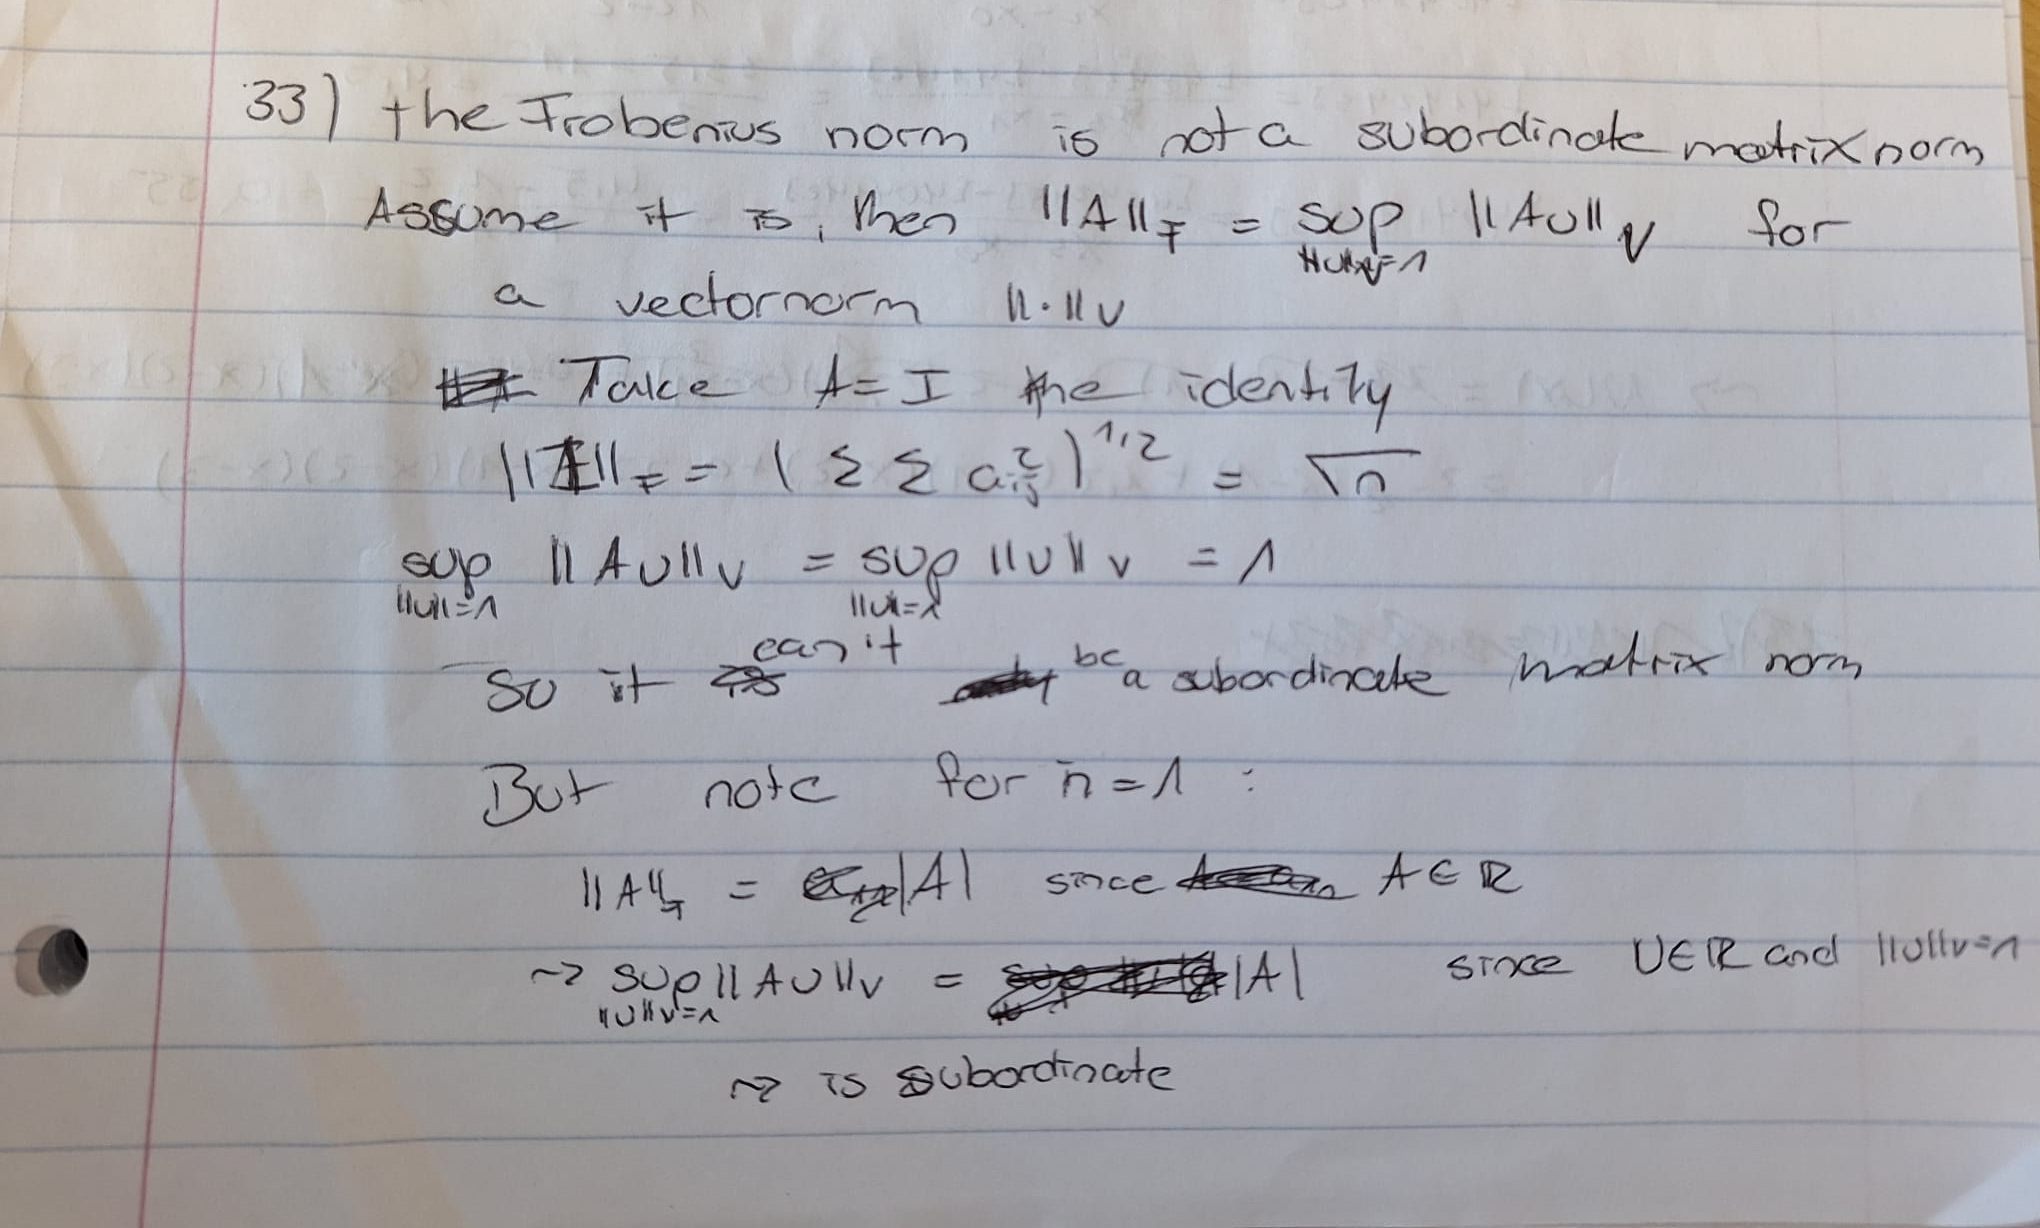 33) the Frobenius norm is not a subordinate matrix norm
Assume it is, then ||A||_F = sup_{||u||_v=1} ||Au||_v for
a vectornorm ||·||_v
Take A = I the identity
||I||_F = (Σ Σ a_{ij}^2)^{1/2} = √n
sup_{||u||=1} ||Au||_v = sup_{||u||=1} ||u||_v = 1
So it can't be a subordinate matrix norm
But note for n = 1 :
||A||_F = |A| since A ∈ ℝ
~> sup_{||u||_v=1} ||Au||_v = |A| since u ∈ ℝ and ||u||_v=1
~> is subordinate